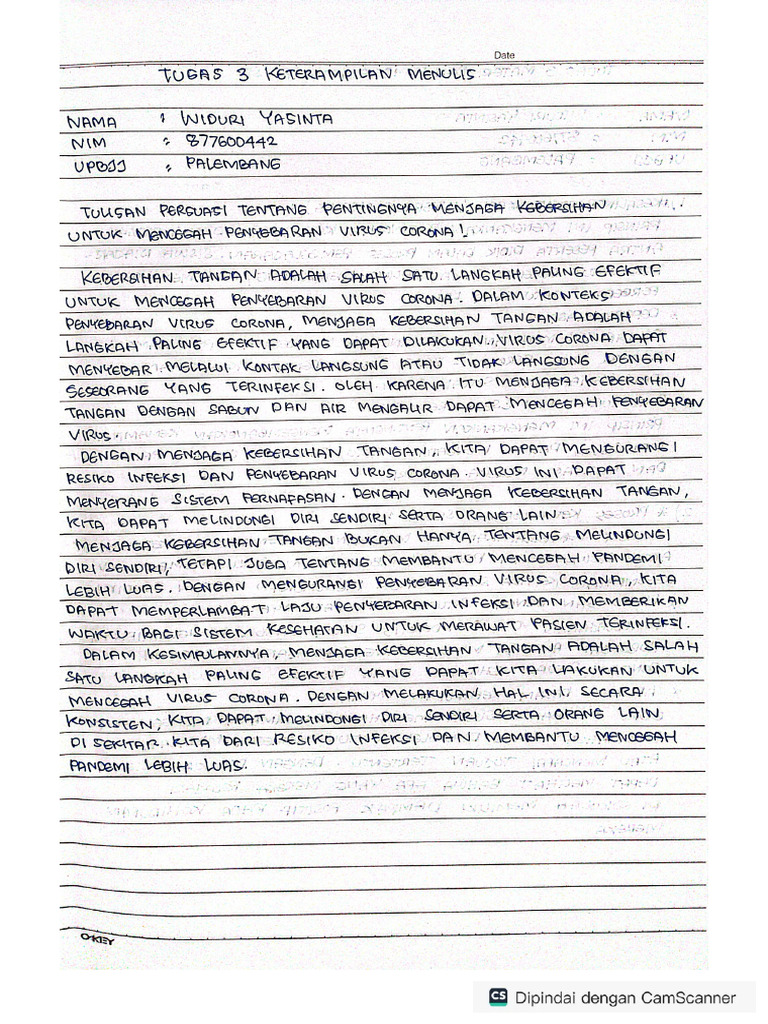 Date
TUGAS 3 KETERAMPILAN MENULIS
NAMA : WIDURI YASINTA
NIM : 877600442
UPBJJ : PALEMBANG
TULISAN PERSUASI TENTANG PENTINGNYA MENJAGA KEBERSIHAN
UNTUK MENCEGAH PENYEBARAN VIRUS CORONA!
KEBERSIHAN TANGAN ADALAH SALAH SATU LANGKAH PALING EFEKTIF
UNTUK MENCEGAH PENYEBARAN VIRUS CORONA. DALAM KONTEKS
PENYEBARAN VIRUS CORONA, MENJAGA KEBERSIHAN TANGAN ADALAH
LANGKAH PALING EFEKTIF YANG DAPAT DILAKUKAN, VIRUS CORONA DAPAT
MENYEBAR MELALUI KONTAK LANGSUNG ATAU TIDAK LANGSUNG DENGAN
SESEORANG YANG TERINFEKSI. OLEH KARENA ITU MENJAGA KEBERSIHAN
TANGAN DENGAN SABUN DAN AIR MENGALIR DAPAT MENCEGAH PENYEBARAN
VIRUS.
DENGAN MENJAGA KEBERSIHAN TANGAN, KITA DAPAT MENGURANGI
RESIKO INFEKSI DAN PENYEBARAN VIRUS CORONA. VIRUS INI DAPAT
MENYERANG SISTEM PERNAFASAN. DENGAN MENJAGA KEBERSIHAN TANGAN,
KITA DAPAT MELINDUNGI DIRI SENDIRI SERTA ORANG LAIN
MENJAGA KEBERSIHAN TANGAN BUKAN HANYA TENTANG MELINDUNGI
DIRI SENDIRI, TETAPI JUGA TENTANG MEMBANTU MENCEGAH PANDEMI
LEBIH LUAS. DENGAN MENGURANGI PENYEBARAN VIRUS CORONA, KITA
DAPAT MEMPERLAMBAT LAJU PENYEBARAN INFEKSI DAN MEMBERIKAN
WAKTU BAGI SISTEM KESEHATAN UNTUK MERAWAT PASIEN TERINFEKSI.
DALAM KESIMPULANNYA, MENJAGA KEBERSIHAN TANGAN ADALAH SALAH
SATU LANGKAH PALING EFEKTIF YANG DAPAT KITA LAKUKAN UNTUK
MENCEGAH VIRUS CORONA. DENGAN MELAKUKAN HAL INI SECARA
KONSISTEN, KITA DAPAT MELINDUNGI DIRI SENDIRI SERTA ORANG LAIN
DI SEKITAR KITA DARI RESIKO INFEKSI DAN MEMBANTU MENCEGAH
PANDEMI LEBIH LUAS.
O-KEY
CS Dipindai dengan CamScanner